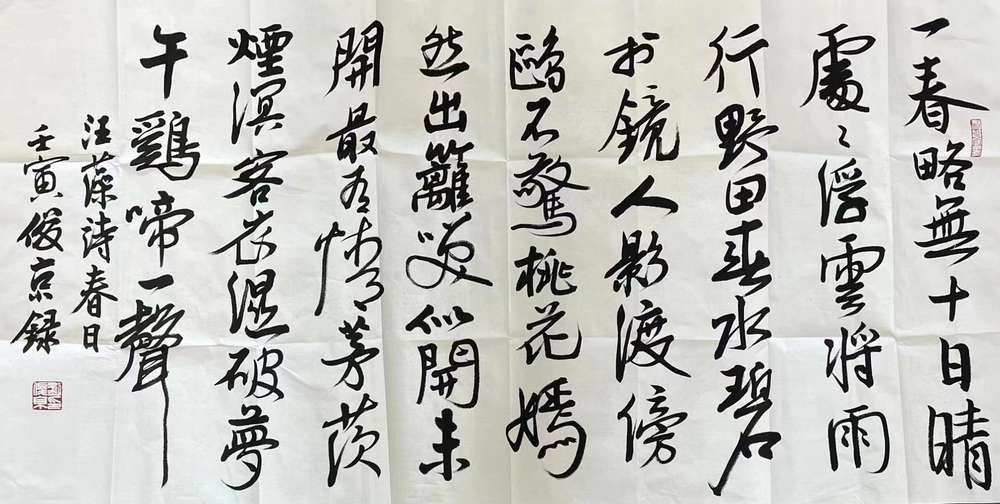 一春略無十日晴
處々浮雲將雨
行野田春水碧
於鏡人影渡傍
鷗不驚桃花嫣
然出籬笑似開未
開最有情茅茨
煙溟客衣濕破夢
午鷄啼一聲
汪藻詩春日
壬寅俊京録